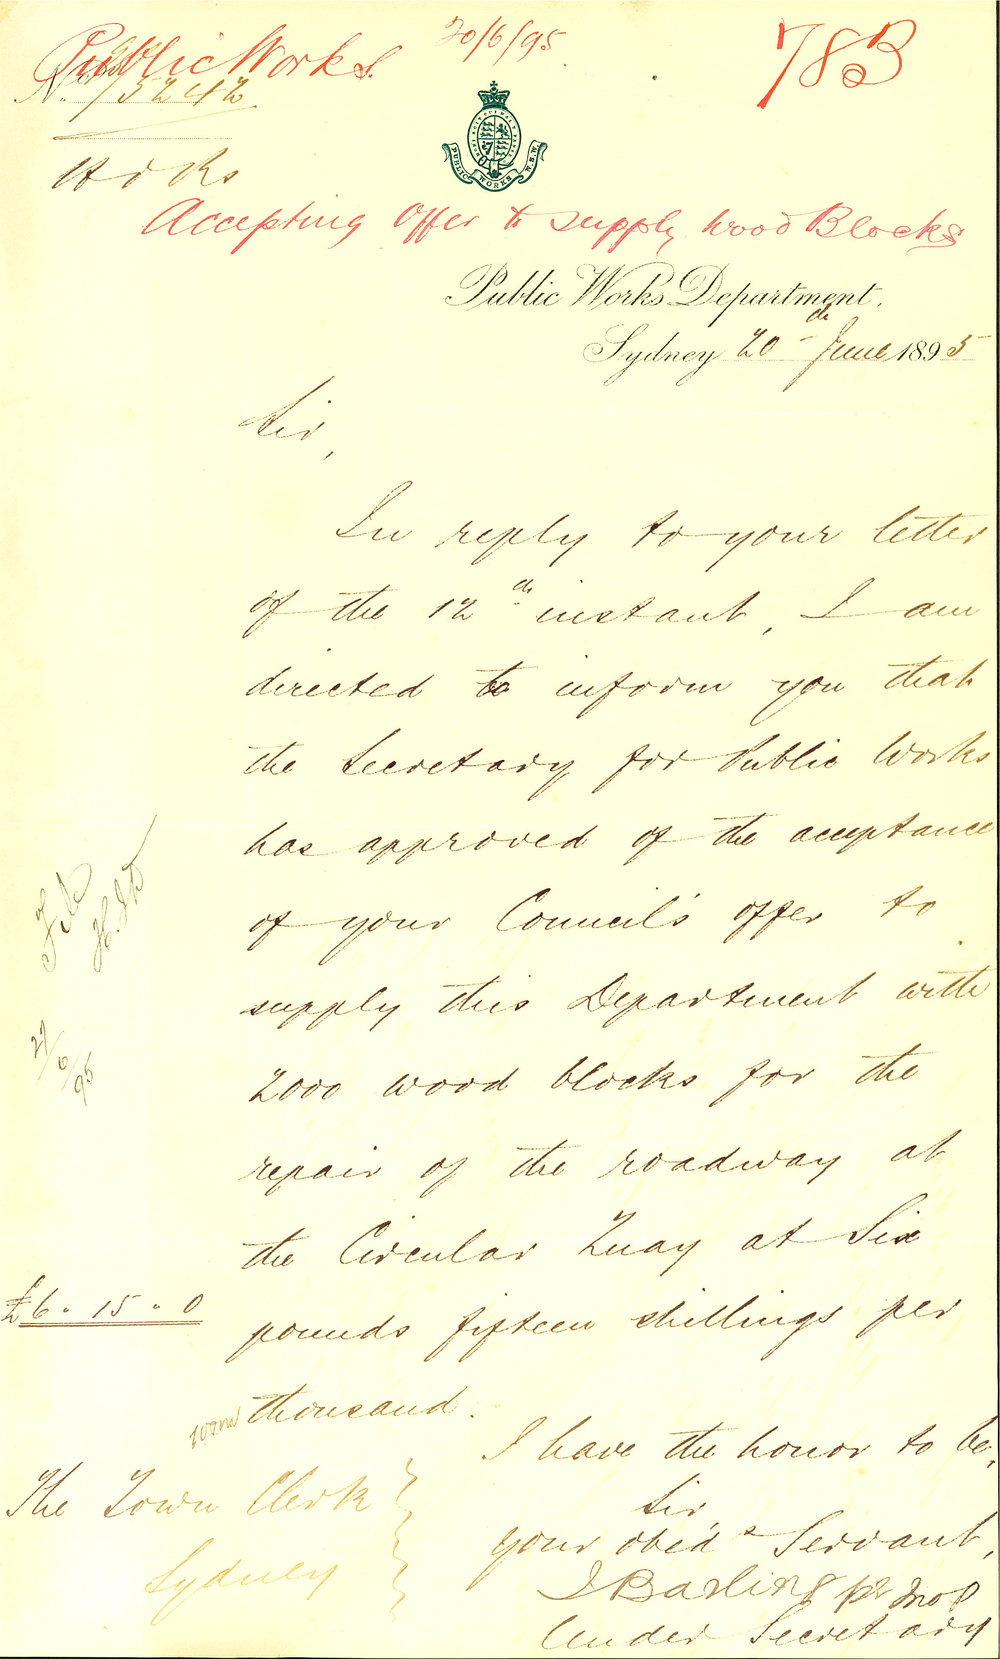 Public Works.
20/6/95
783
No. 95/5242
H & Rs
PUBLIC WORKS N.S.W.
Accepting Offer to supply Wood Blocks
Public Works Department,
Sydney 20th June 1895
Sir,
In reply to your letter
of the 12th instant, I am
directed to inform you that
the Secretary for Public Works
has approved of the acceptance
of your Council's offer to
supply this Department with
2000 wood blocks for the
repair of the roadway at
the Circular Quay at Six
£6 . 15 . 0
pounds fifteen shillings per
thousand.
File
27/6/95
I have the honor to be,
Sir,
The Town Clerk
Sydney
your obedt Servant,
J Barling
Under Secretary